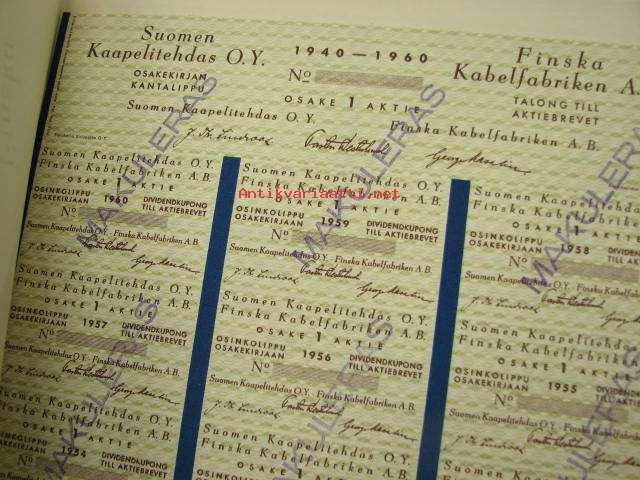 Suomen
Kaapelitehdas O.Y.
OSAKEKIRJAN
KANTALIPPU
1940 — 1960
No
OSAKE 1 AKTIE
Finska
Kabelfabriken A.
TALONG TILL
AKTIEBREVET
Suomen Kaapelitehdas O.Y.
Finska Kabelfabriken A.B.
MAKULERAS
MAKULERAS
Antikvariaatti.net
Suomen Kaapelitehdas O.Y.
Finska Kabelfabriken A.B.
OSAKE 1 AKTIE
OSINKOLIPPU
OSAKEKIRJAAN
1960
DIVIDENDKUPONG
TILL AKTIEBREVET
No
Suomen Kaapelitehdas O.Y. Finska Kabelfabriken A.B.
MAKULERAS
Suomen Kaapelitehdas O.Y.
Finska Kabelfabriken A.B.
OSAKE 1 AKTIE
OSINKOLIPPU
OSAKEKIRJAAN
1959
DIVIDENDKUPONG
TILL AKTIEBREVET
No
Suomen Kaapelitehdas O.Y. Finska Kabelfabriken A.B.
MAKULERAS
Suomen Kaapelitehdas
Finska Kabelfabriken
OSAKE 1
OSINKOLIPPU
OSAKEKIRJAAN
1958
DIVIDEN
TILL AK
No
MAKULERAS
Suomen Kaapelitehdas O.Y.
Finska Kabelfabriken A.B.
OSAKE 1 AKTIE
OSINKOLIPPU
OSAKEKIRJAAN
1957
DIVIDENDKUPONG
TILL AKTIEBREVET
No
Suomen Kaapelitehdas O.Y. Finska Kabelfabriken A.B.
MAKULERAS
Suomen Kaapelitehdas O.Y.
Finska Kabelfabriken A.B.
OSAKE 1 AKTIE
OSINKOLIPPU
OSAKEKIRJAAN
1956
DIVIDENDKUPONG
TILL AKTIEBREVET
No
Suomen Kaapelitehdas O.Y. Finska Kabelfabriken A.B.
MAKULERAS
Suomen Kaapelitehdas
Finska Kabelfabriken
OSAKE 1
OSINKOLIPPU
OSAKEKIRJAAN
1955
No
Suomen Kaapelitehdas O.Y. Finska
Suomen Kaapelitehdas O.Y.
Finska Kabelfabriken A.B.
OSAKE 1 AKTIE
OSINKOLIPPU
1954
DIVIDENDKUPONG
TILL AKTIEBREVET
Suomen Kaapelitehdas O.Y.
Finska Kabelfabriken A.B.
OSAKE 1 AKTIE
Suomen Kaapelitehdas
Finska Kabelfabriken